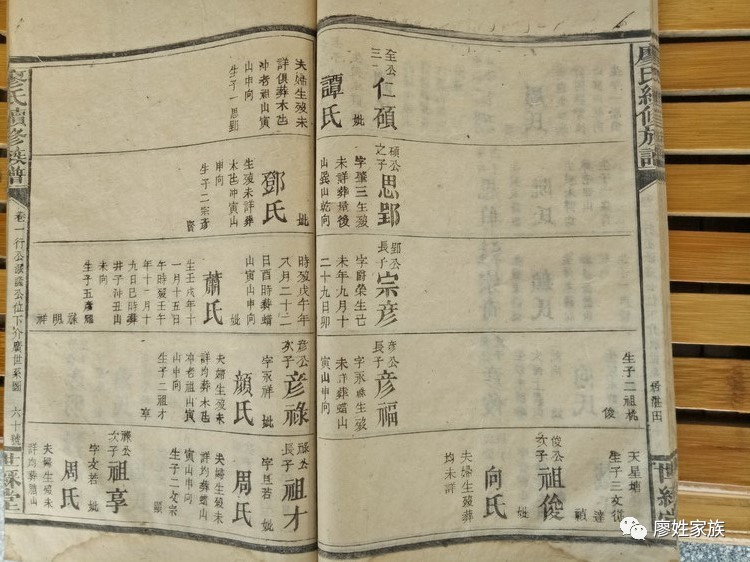 廖氏續修族譜
世綵堂
居淮田
全公
三
仁碩
妣
譚氏
夫婦生殁未
詳俱葬木岜
冲老祖山寅
山申向
生子一思郢
碩公
之子
思郢
字肇三生殁
未詳葬屋後
山艮山乾向
鄧氏
生殁未詳葬
木岜冲寅山
申向
生子二宗彥
郢公
長子
宗彥
字爵榮生己
未年九月十
二十九日卯
時殁戊午年
又月二十二
日酉時葬蟠
山寅山申向
妣
蕭氏
生壬戌年十
一月十五日
午時殁壬午
年十二月十
九日巳時葬
井子冲丑山
未向
生子五彥福
祿
明
祥
彥公
長子
彥福
字永
生殁
未詳葬蟠山
寅山申向
生子二祖桄
俊
彥公
次子
彥祿
字永祥
妣
顏氏
夫婦生殁未
詳均葬木岜
冲老祖山寅
山申向
生子二祖才
享
俊公
次子
祖俊
妣
向氏
夫婦生殁葬
均未詳
天星塘
生子三文從
達
祿公
長子
祖才
字旦若
妣
周氏
夫婦生殁未
詳均葬蟠山
寅山申向
生子二文宗
顯
祿公
次子
祖享
字友若
妣
周氏
夫婦生殁未
詳均葬蟠山
廖氏續修族譜
卷一行公
公位下
世系圖
六十號
世綵堂
廖姓家族